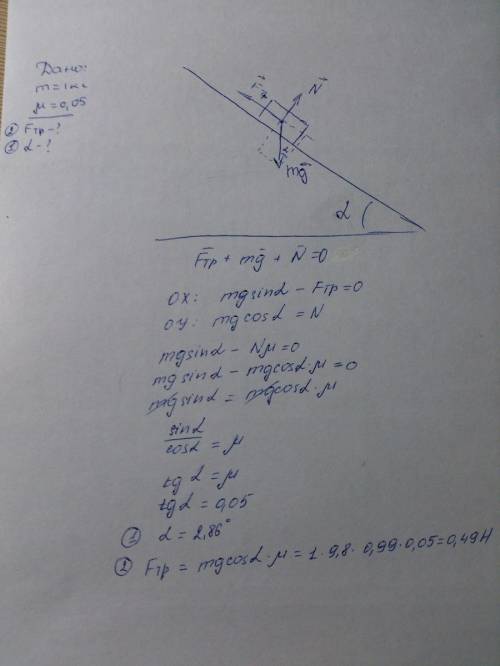 Дано:
m = 1 кг
μ = 0,05
② Fтр - ?
① α - ?
Fтр
N
mg
α
F̄тр + mḡ + N̄ = 0
OX: mgsinα - Fтр = 0
OY: mgcosα = N
mgsinα - Nμ = 0
mgsinα - mgcosα·μ = 0
mgsinα = mgcosα·μ
sinα
cosα = μ
tgα = μ
tgα = 0,05
① α = 2,86°
② Fтр = mgcosα·μ = 1·9,8·0,99·0,05 = 0,49Н